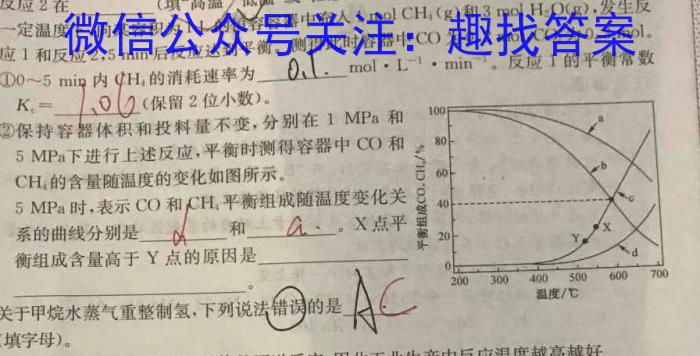 反应2在 (填"高温""低温"
一定温度 1 L的恒容容器中 入 mol CH₄(g)和3 mol H₂O(g),发生反
应1和反应2,5 min后反应达到平衡,测得此时容器中CO mol。
微信公众号关注:趣找答案
①0~5 min内CH₄的消耗速率为 0.1 mol·L⁻¹·min⁻¹。反应1的平衡常数
Kc= 1.06 (保留2位小数)。
②保持容器体积和投料量不变,分别在1 MPa和
5 MPa下进行上述反应,平衡时测得容器中CO和
CH₄的含量随温度的变化如图所示。
5 MPa时,表示CO和CH₄平衡组成随温度变化关
系的曲线分别是 d 和 a 。X点平
衡组成含量高于Y点的原因是
。
平衡组成CO、CH₄/%
100
80
60
40
20
0
a
b
c
X
Y
d
200 300 400 500 600 700
温度/℃
关于甲烷水蒸气重整制氢,下列说法错误的是 A C
(填字母)。
工业生产中反应温度越高越好